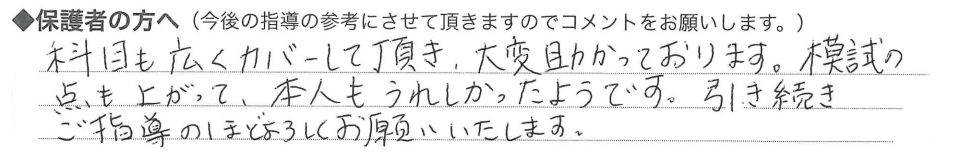 ◆保護者の方へ（今後の指導の参考にさせて頂きますのでコメントをお願いします。）
科目も広くカバーして頂き、大変助かっております。模試の
点も上がって、本人もうれしかったようです。引き続き
ご指導のほどよろしくお願いいたします。